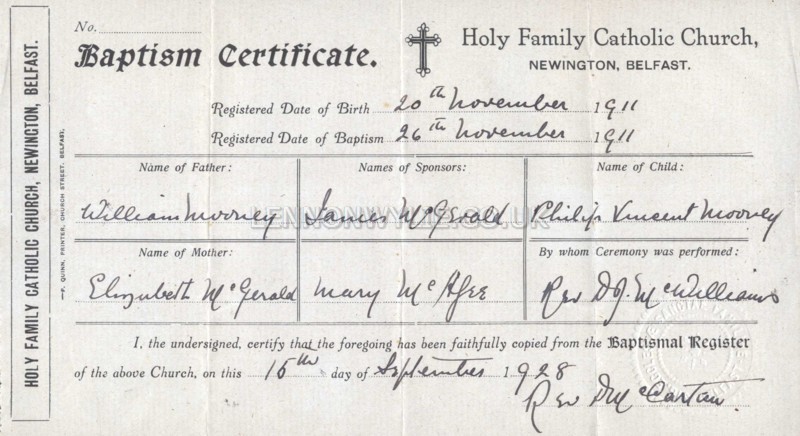 No.
Baptism Certificate.
Holy Family Catholic Church,
NEWINGTON, BELFAST.
Registered Date of Birth 20th November 1911
Registered Date of Baptism 26th November 1911
Name of Father: Names of Sponsors: Name of Child:
William Mooney James McGerald Philip Vincent Mooney
Name of Mother: By whom Ceremony was performed:
Elizabeth McGerald Mary McAfee Rev D.J. McWilliams
I, the undersigned, certify that the foregoing has been faithfully copied from the Baptismal Register
of the above Church, on this 15th day of September 1928
Rev D McCartan
HOLY FAMILY CATHOLIC CHURCH, NEWINGTON, BELFAST.
—F. QUINN, PRINTER, CHURCH STREET, BELFAST.
LENNONWYLIE.CO.UK